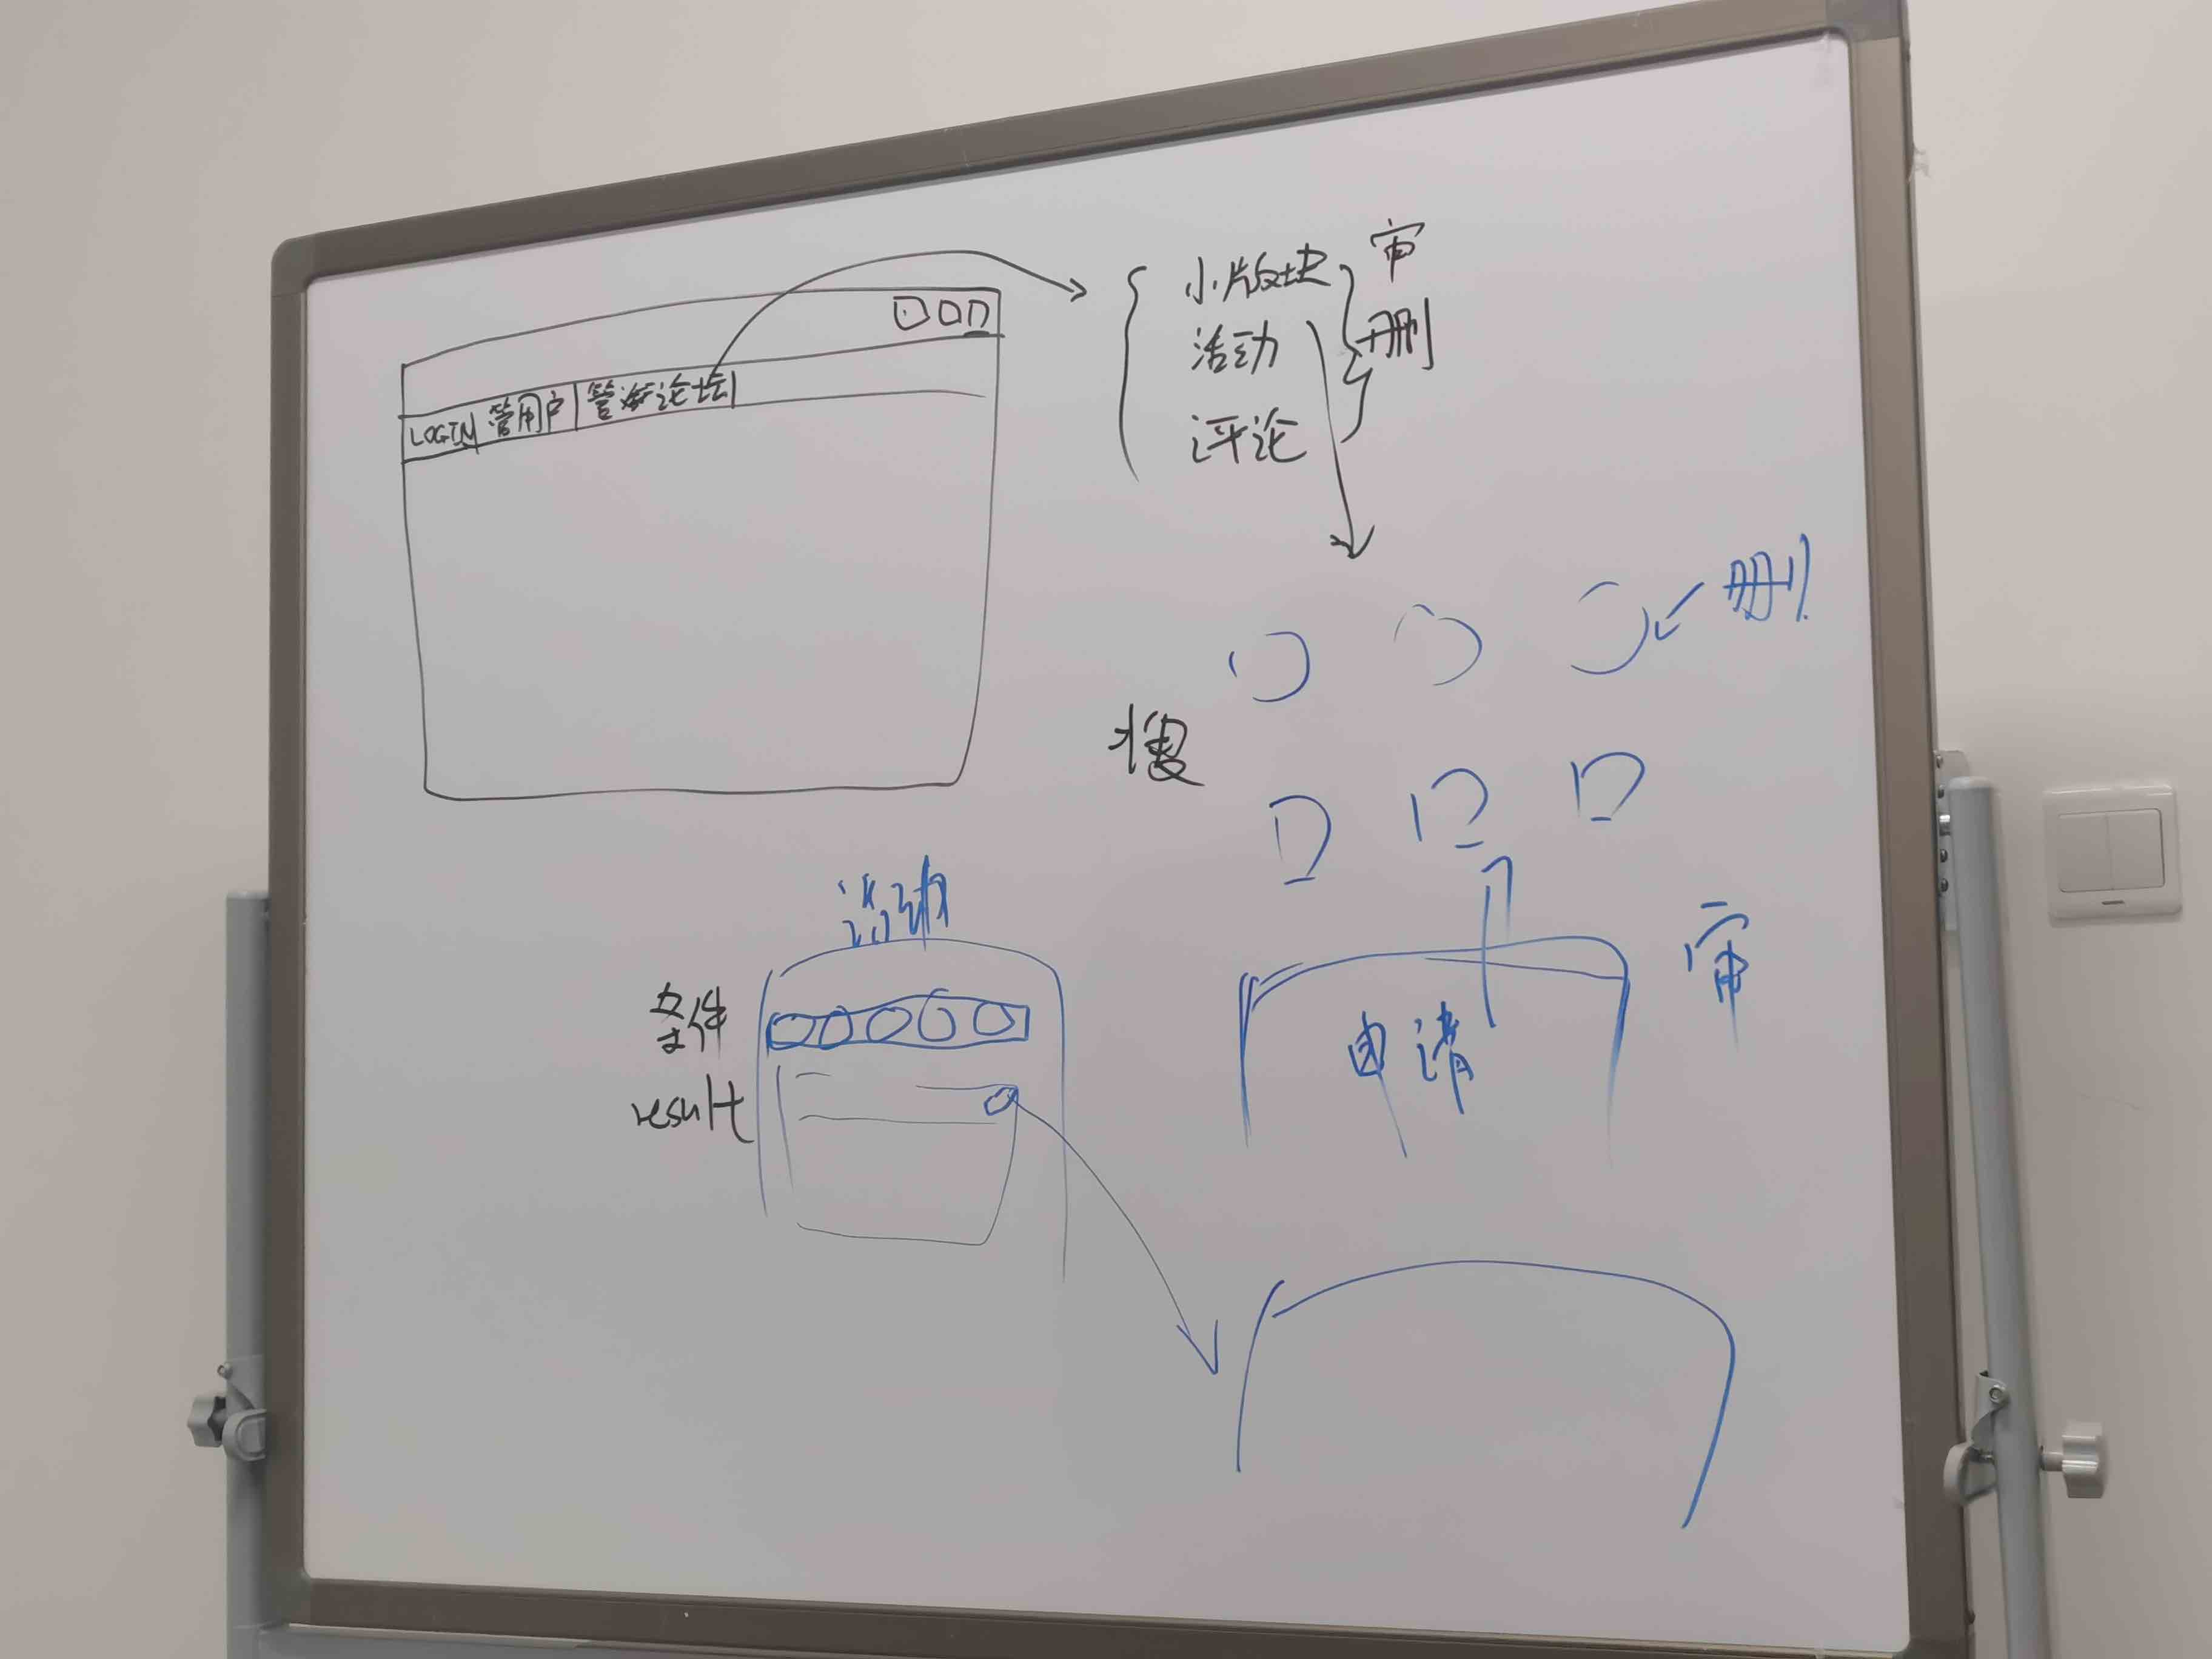 LOGIN 管用户 管论坛
小版块
活动
评论
审
删
删
搜
活动
条件
result
申请
审